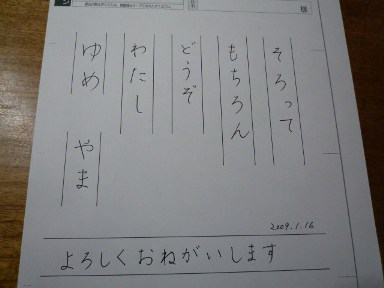 様
そろって
もちろん
どうぞ
わたし
ゆめ
やま
2009.1.16
よろしくおねがいします